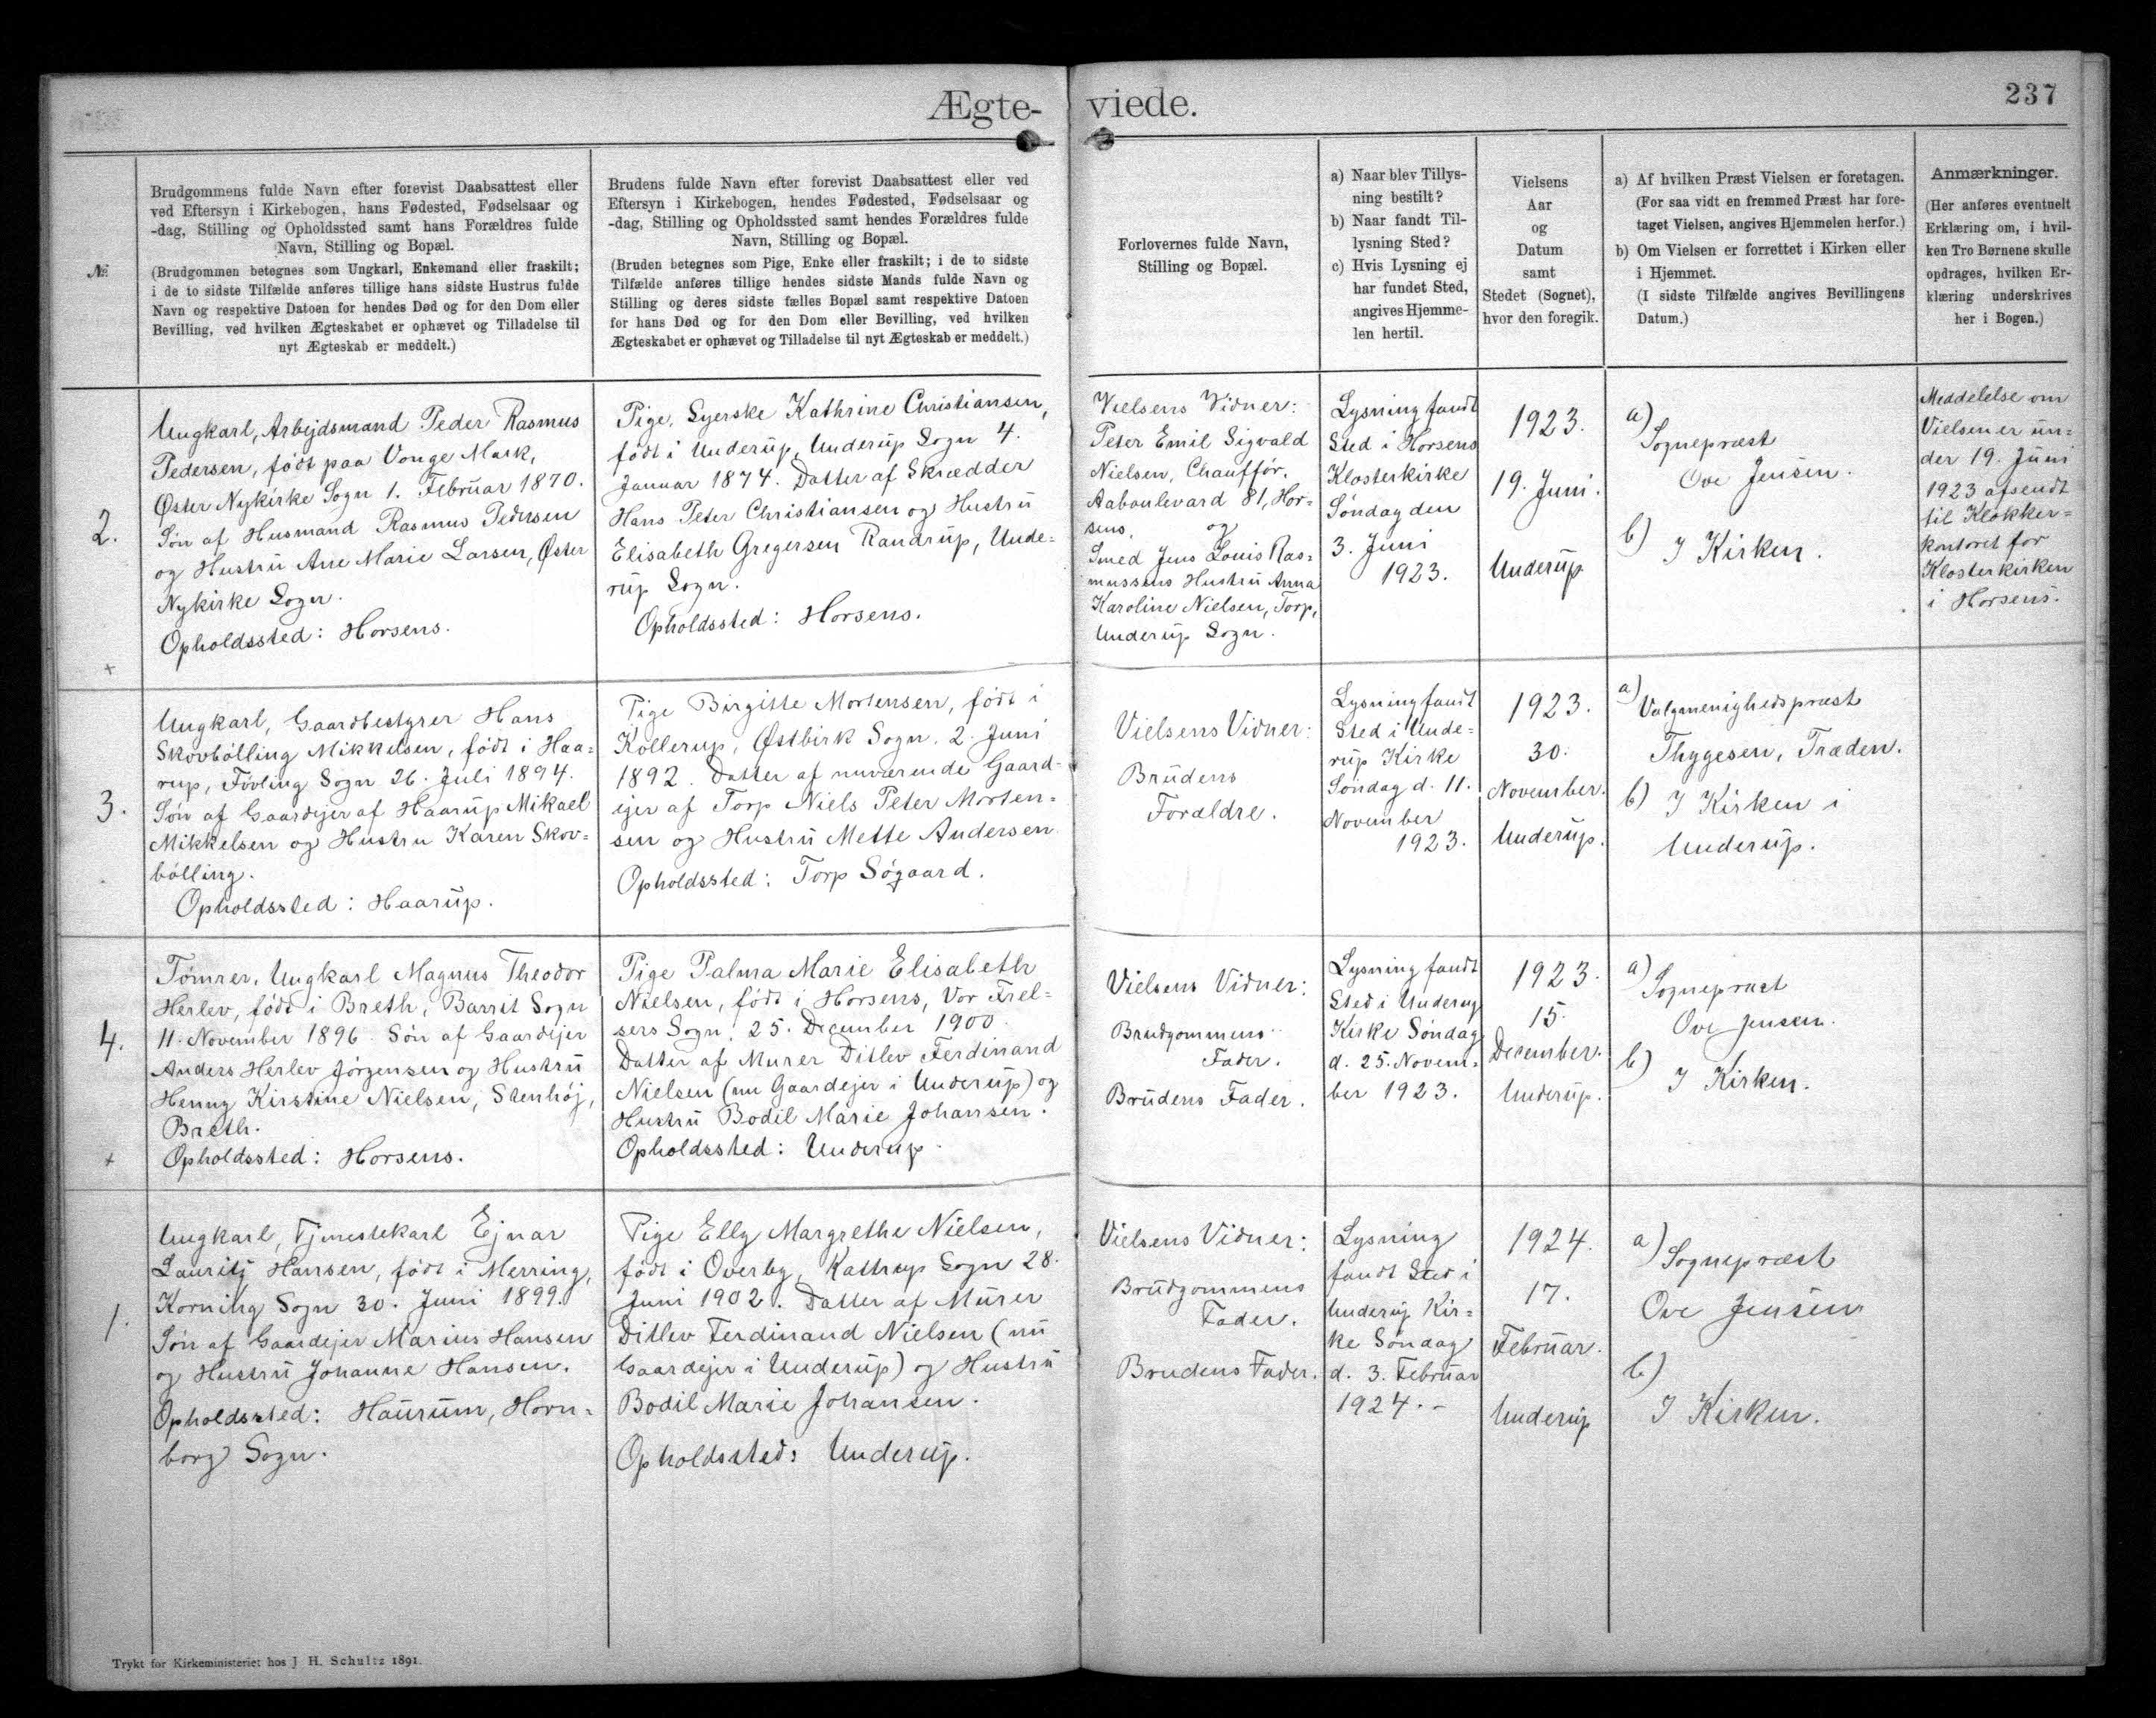 Ægte-
viede.
237
№
Brudgommens fulde Navn efter forevist Daabsattest eller
ved Eftersyn i Kirkebogen, hans Fødested, Fødselsaar og
-dag, Stilling og Opholdssted samt hans Forældres fulde
Navn, Stilling og Bopæl.
(Brudgommen betegnes som Ungkarl, Enkemand eller fraskilt;
i de to sidste Tilfælde anføres tillige hans sidste Hustrus fulde
Navn og respektive Datoen for hendes Død og for den Dom eller
Bevilling, ved hvilken Ægteskabet er ophævet og Tilladelse til
nyt Ægteskab er meddelt.)
Brudens fulde Navn efter forevist Daabsattest eller ved
Eftersyn i Kirkebogen, hendes Fødested, Fødselsaar og
-dag, Stilling og Opholdssted samt hendes Forældres fulde
Navn, Stilling og Bopæl.
(Bruden betegnes som Pige, Enke eller fraskilt; i de to sidste
Tilfælde anføres tillige hendes sidste Mands fulde Navn og
Stilling og deres sidste fælles Bopæl samt respektive Datoen
for hans Død og for den Dom eller Bevilling, ved hvilken
Ægteskabet er ophævet og Tilladelse til nyt Ægteskab er meddelt.)
Forlovernes fulde Navn,
Stilling og Bopæl.
a) Naar blev Tillys-
ning bestilt?
b) Naar fandt Til-
lysning Sted?
c) Hvis Lysning ej
har fundet Sted,
angives Hjemme-
len hertil.
Vielsens
Aar
og
Datum
samt
Stedet (Sognet),
hvor den foregik.
a) Af hvilken Præst Vielsen er foretagen.
(For saa vidt en fremmed Præst har fore-
taget Vielsen, angives Hjemmelen herfor.)
b) Om Vielsen er forrettet i Kirken eller
i Hjemmet.
(I sidste Tilfælde angives Bevillingens
Datum.)
Anmærkninger.
(Her anføres eventuelt
Erklæring om, i hvil-
ken Tro Børnene skulle
opdrages, hvilken Er-
klæring underskrives
her i Bogen.)
2.
Ungkarl, Arbejdsmand Peder Rasmus
Pedersen, født paa Vonge Mark,
Øster Nykirke Sogn 1. Februar 1870.
Søn af Husmand Rasmus Pedersen
og Hustru Ane Marie Larsen, Øster
Nykirke Sogn.
Opholdssted: Horsens.
+
Pige, Syerske Kathrine Christiansen,
født i Underup, Underup Sogn 4.
Januar 1874. Datter af Skrædder
Hans Peter Christiansen og Hustru
Elisabeth Gregersen Randrup, Unde=
rup Sogn.
Opholdssted: Horsens.
Vielsens Vidner:
Peter Emil Sigvald
Nielsen, Chauffør,
Aaboulevard 81, Hor-
sens,
og
Smed Jens Louis Ras=
mussens Hustru Anna
Karoline Nielsen, Torp,
Underup Sogn.
Lysning fandt
Sted i Horsens
Klosterkirke
Søndag den
3. Juni
1923.
1923.
19. Juni.
Underup
a)
Sognepræst
Ove Jensen.
b) I Kirken.
Meddelelse om
Vielsen er un=
der 19. Juni
1923 afsendt
til Klokker=
kontoret for
Klosterkirken
i Horsens.
3.
Ungkarl, Gaardbestyrer Hans
Skovbølling Mikkelsen, født i Haa=
rup, Føvling Sogn 26. Juli 1894.
Søn af Gaardejer af Haarup Mikael
Mikkelsen og Hustru Karen Skov=
bølling.
Opholdssted: Haarup.
Pige Birgitte Mortensen, født i
Kollerup, Østbirk Sogn, 2. Juni
1892. Datter af nuværende Gaard-
ejer af Torp Niels Peter Morten=
sen og Hustru Mette Andersen
Opholdssted: Torp Søgaard.
Vielsens Vidner:
Brudens
Forældre.
Lysning fandt
Sted i Unde-
rup Kirke
Søndag d. 11.
November
1923.
1923.
30.
November.
Underup.
a) Valgmenighedspræst
Thygesen, Træden.
b) I Kirken i
Underup.
4.
Tømrer, Ungkarl Magnus Theodor
Herlev, født i Breth, Barrit Sogn
11. November 1896. Søn af Gaardejer
Anders Herlev Jørgensen og Hustru
Henny Kirstine Nielsen, Stenhøj,
Breth.
Opholdssted: Horsens.
+
Pige Palma Marie Elisabeth
Nielsen, født i Horsens, Vor Frel=
sers Sogn, 25. December 1900.
Datter af Murer Ditlev Ferdinand
Nielsen (nu Gaardejer i Underup) og
Hustru Bodil Marie Johansen.
Opholdssted: Underup
Vielsens Vidner:
Brudgommens
Fader.
Brudens Fader.
Lysning fandt
Sted i Underup
Kirke Søndag
d. 25. Novem-
ber 1923.
1923.
15.
December.
Underup.
a) Sognepræst
Ove Jensen.
b) I Kirken.
1.
Ungkarl, Tjenestekarl Ejnar
Lauritz Hansen, født i Merring,
Korning Sogn 30. Juni 1899.
Søn af Gaardejer Marius Hansen
og Hustru Johanne Hansen.
Opholdssted: Haurum, Horn=
borg Sogn.
Pige Elly Margrethe Nielsen,
født i Overby, Kattrup Sogn 28.
Juni 1902. Datter af Murer
Ditlev Ferdinand Nielsen (nu
Gaardejer i Underup) og Hustru
Bodil Marie Johansen.
Opholdssted: Underup.
Vielsens Vidner:
Brudgommens
Fader.
Brudens Fader.
Lysning
fandt Sted i
Underup Kir=
ke Søndag
d. 3. Februar
1924.-
1924.
17.
Februar.
Underup
a) Sognepræst
Ove Jensen
b)
I Kirken.
Trykt for Kirkeministeriet hos J H. Schultz 1891.